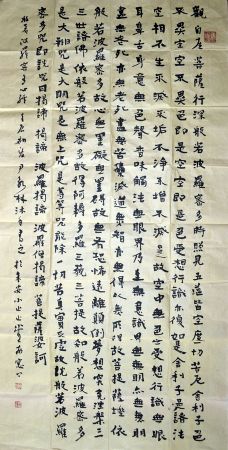 觀自在菩薩行深般若波羅蜜多時照見五蘊皆空度一切苦厄舍利子色
不異空空不異色色即是空空即是色受想行識亦復如是舍利子是諸法
空相不生不滅不垢不淨不增不減是故空中無色無受想行識無眼
耳鼻舌身意無色聲香味觸法無眼界乃至無意識界無無明亦無無明
盡乃至無老死亦無老死盡無苦集滅道無智亦無得以無所得故菩提薩埵依
般若波羅蜜多故心無罣礙無罣礙故無有恐怖遠離顛倒夢想究竟涅槃三
世諸佛依般若波羅蜜多故得阿耨多羅三藐三菩提故知般若波羅蜜多
是大神咒是大明咒是無上咒是無等等咒能除一切苦真實不虛故說般若波羅
蜜多咒即說咒曰揭諦揭諦波羅揭諦波羅僧揭諦菩提薩婆訶
般若波羅蜜多心經 林沐手書之於長安